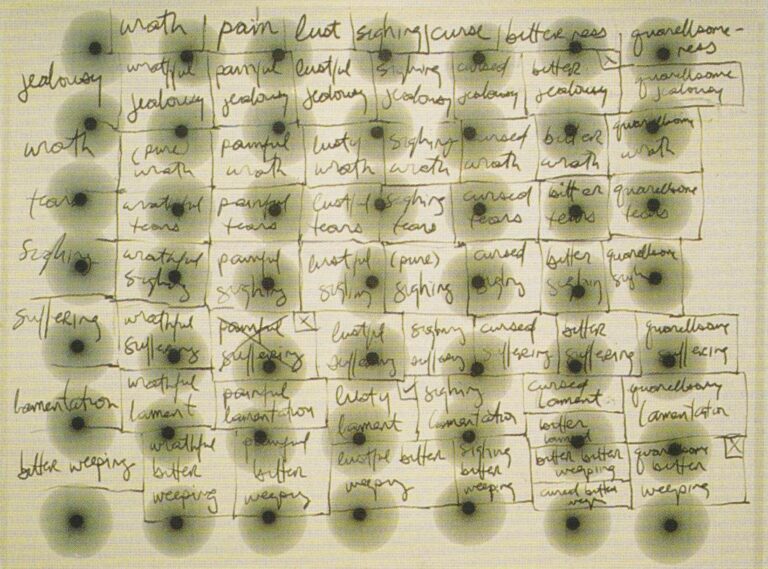 wrath pain lust sighing curse bitterness quarellsome-
ness
jealousy wrathful painful lustful sighing cursed bitter quarellsome
jealousy jealousy jealousy jealousy jealousy jealousy jealousy
wrath (pure) painful lusty sighing cursed bitter quarellsome
wrath wrath wrath wrath wrath wrath wrath
tears wrathful painful lustful sighing cursed bitter quarellsome
tears tears tears tears tears tears tears
sighing wrathful painful lustful (pure) cursed bitter quarellsome
sighing sighing sighing sighing sighing sighing sighing
suffering wrathful painful X lustful sighing cursed bitter quarellsome
suffering suffering suffering suffering suffering suffering suffering
lamentation wrathful painful lusty sighing cursed quarellsome
lament lamentation lament lamentation lament lamentation
bitter
lament
bitter weeping wrathful painful lustful bitter sighing bitter bitter quarellsome X
bitter bitter weeping bitter weeping bitter
weeping weeping weeping cursed bitter weeping